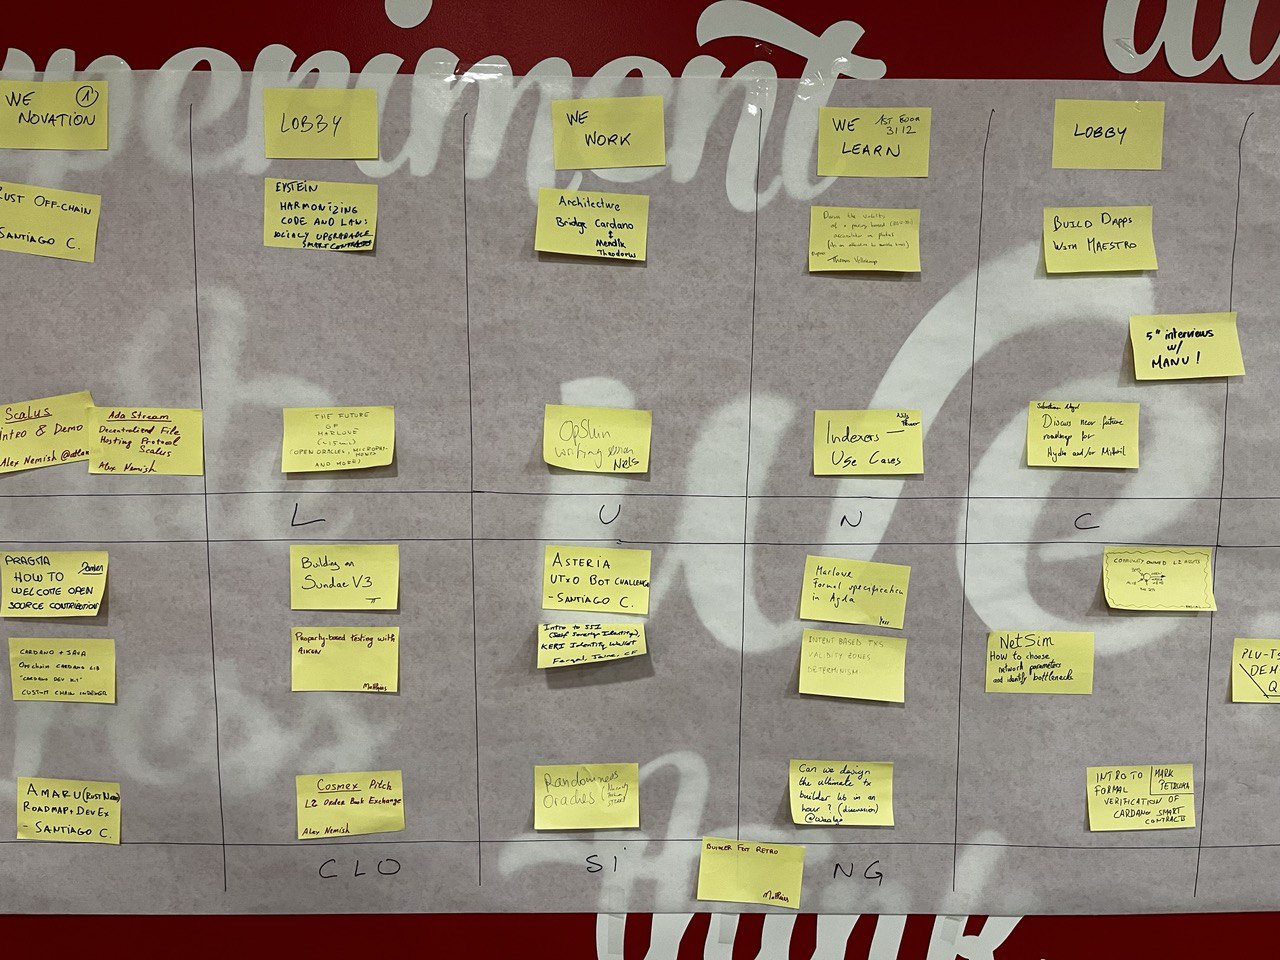 WE
NOVATION
1
LOBBY
WE
WORK
WE 1ST FLOOR
3112
LEARN
LOBBY
UST OFF-CHAIN
SANTIAGO C.
EPSTEIN
HARMONIZING
CODE AND LAW:
SOCIALLY UPGRADABLE
SMART CONTRACTS
Architecture
Bridge Cardano
&
Mendix
Theodorus
of a pairing based
accumulator in plutus
Thomas Vellekoop
BUILD DAPPS
WITH MAESTRO
5" interviews
w/
MANU!
Scalus
Intro & Demo
Alex Nemish
Ada Stream
Decentralized File
Hosting Protocol
Scalus
Alex Nemish
THE FUTURE
OF
MARLOWE
(~15 MIN)
(OPEN ORACLES, MICROPAY-
MENTS
AND MORE)
OpShin
Writing session
Niels
Indexers
Use Cases
Sebastian Nagel
Discuss near future
roadmap for
Hydra and/or Mithril
L U N C
PRAGMA Damien
HOW TO
WELCOME OPEN
SOURCE CONTRIBUTION
Building on
Sundae V3
ASTERIA
UTxO BOT CHALLENGE
- SANTIAGO C.
Marlowe
Formal specification
in Agda
COMMUNITY OWNED L2 ASSETS
CARDANO + JAVA
CARDANO LIB
"CARDANO DEV KIT"
CUSTOM CHAIN INDEXER
Property-based testing with
AIKEN
Matthias
Intro to SSI
(Self Sovereign Identity),
KERI Identity Wallet
Fergal, Jaime, CF
INTENT BASED TXS
VALIDITY ZONES
DETERMINISM
NetSim
How to choose
network parameters
and identify bottlenecks
PLU-TS
DEM
Q
AMARU (RUST NODE)
ROADMAP + DEV EX
- SANTIAGO C.
Cosmex Pitch
L2 Order Book Exchange
Alex Nemish
Randomness
Oracles
Can we design
the ultimate tx
builder lib in an
hour? (discussion)
INTRO TO
FORMAL
VERIFICATION OF
CARDANO SMART
CONTRACTS
MARK
PETRUSKA
CLO SI NG
BUILDER FEST RETRO
Matthias